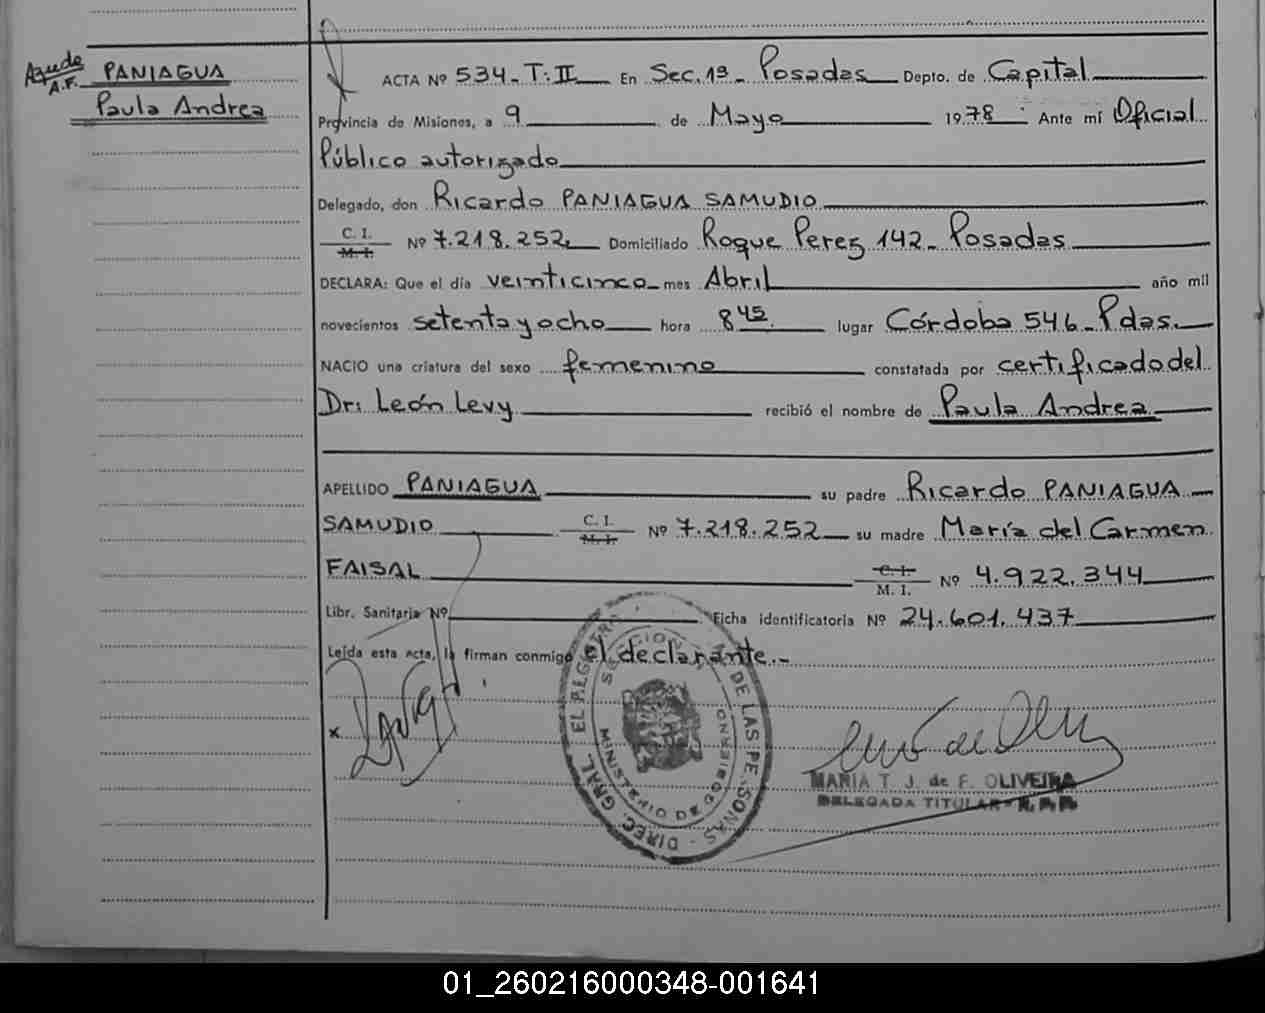 Agude
A.F.
PANIAGUA
Paula Andrea
ACTA Nº 534 - T: II En Sec. 1ª - Posadas Depto. de Capital
Provincia de Misiones, a 9 de Mayo 1978 Ante mí Oficial
Público autorizado
Delegado, don Ricardo PANIAGUA SAMUDIO
C. I.
M. I. Nº 7.218.252 Domiciliado Roque Perez 142 - Posadas
DECLARA: Que el día veinticinco mes Abril año mil
novecientos setenta y ocho hora 8 45 lugar Córdoba 546 - Pdas.
NACIO una criatura del sexo femenino constatada por certificado del
Dr: León Levy recibió el nombre de Paula Andrea
APELLIDO PANIAGUA su padre Ricardo PANIAGUA
SAMUDIO C. I. M. I. Nº 7.218.252 su madre María del Carmen
FAISAL C. I. M. I. Nº 4.922.344
Libr. Sanitaria Nº Ficha identificatoria Nº 24.601.437
Leída esta acta, la firman conmigo el declarante.-
DIREC. GRAL. EL REGISTRO DE LAS PERSONAS
MINISTERIO DE GOBIERNO
SECCION
MARIA T. J. de F. OLIVEIRA
DELEGADA TITULAR - R.P.P.
01_260216000348-001641